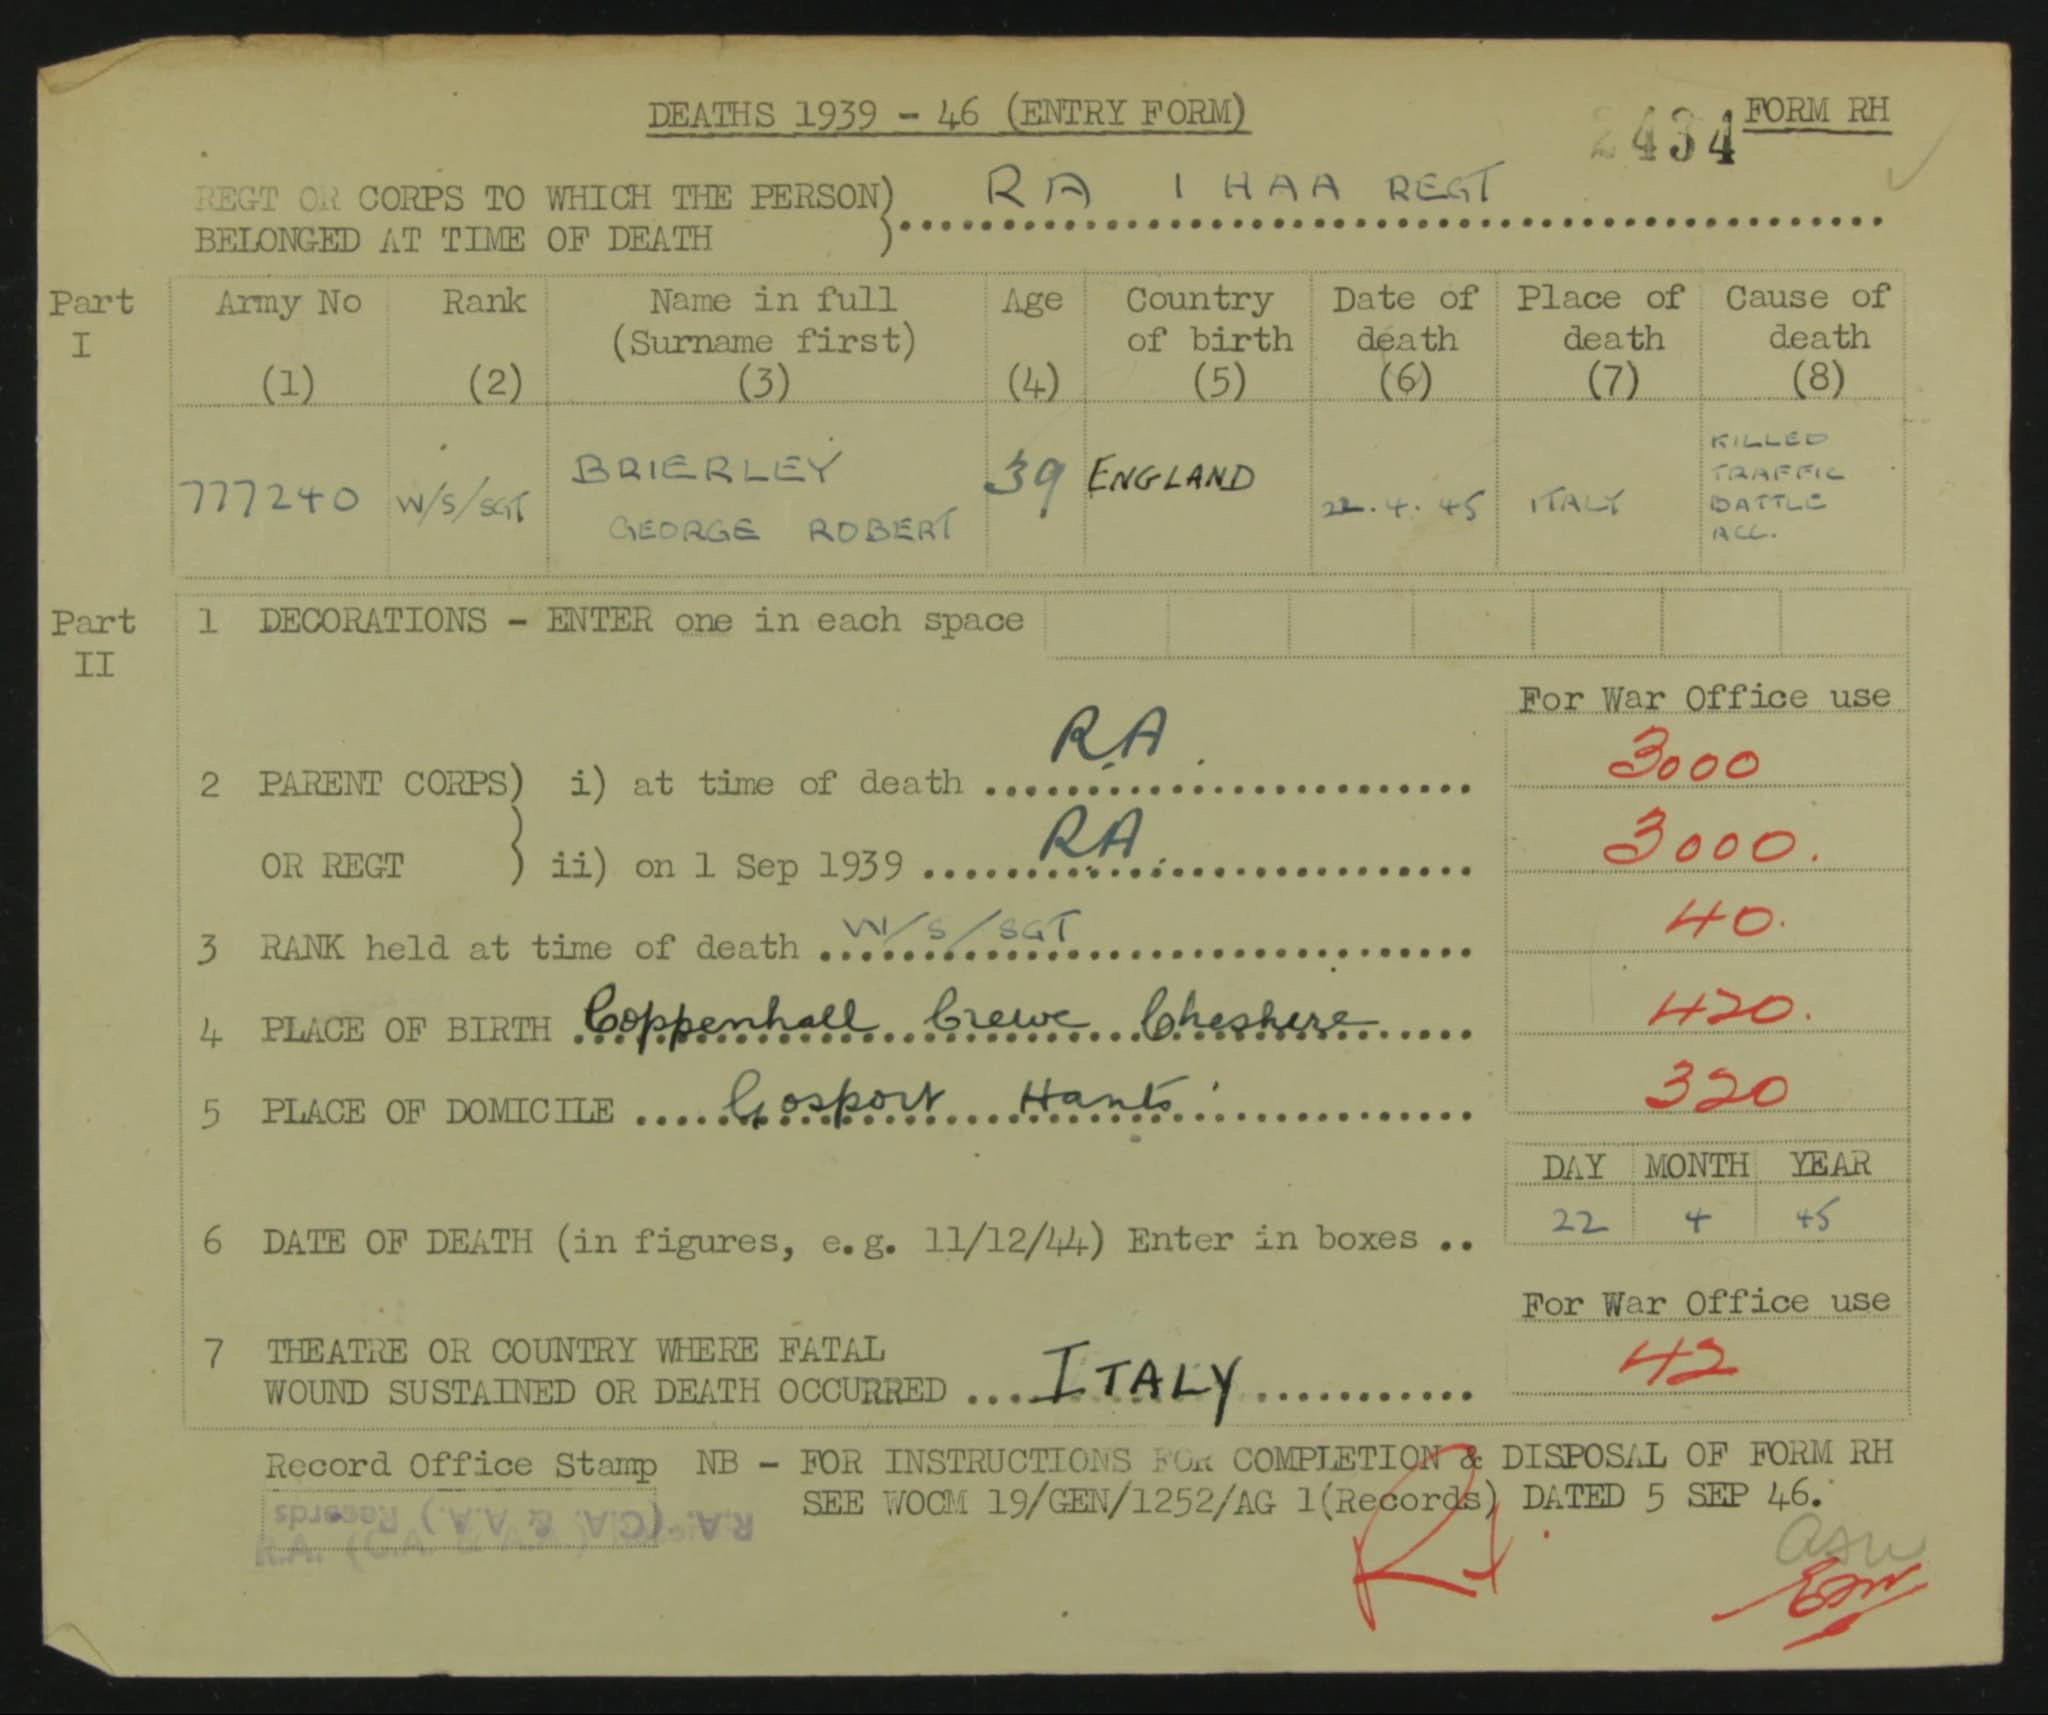 DEATHS 1939 - 46 (ENTRY FORM)
2434 FORM RH
REGT OR CORPS TO WHICH THE PERSON) RA 1 HAA REGT
BELONGED AT TIME OF DEATH )
Part I
Army No Rank Name in full Age Country Date of Place of Cause of
(Surname first) of birth death death death
(1) (2) (3) (4) (5) (6) (7) (8)
777240 W/S/SGT BRIERLEY 39 ENGLAND 22.4.45 ITALY KILLED
GEORGE ROBERT TRAFFIC
BATTLE
ACC.
Part II
1 DECORATIONS - ENTER one in each space
For War Office use
2 PARENT CORPS) i) at time of death RA 3000
OR REGT ) ii) on 1 Sep 1939 RA. 3000.
3 RANK held at time of death W/S/SGT 40.
4 PLACE OF BIRTH Coppenhall Crewe Cheshire 420.
5 PLACE OF DOMICILE Gosport Hants 320
DAY MONTH YEAR
6 DATE OF DEATH (in figures, e.g. 11/12/44) Enter in boxes .. 22 4 45
For War Office use
7 THEATRE OR COUNTRY WHERE FATAL
WOUND SUSTAINED OR DEATH OCCURRED ... ITALY 42
Record Office Stamp NB - FOR INSTRUCTIONS FOR COMPLETION & DISPOSAL OF FORM RH
SEE WOCM 19/GEN/1252/AG 1(Records) DATED 5 SEP 46.
R.A. (C.A. & A.A.) Records
R.A. (C.A. & A.A.) Records